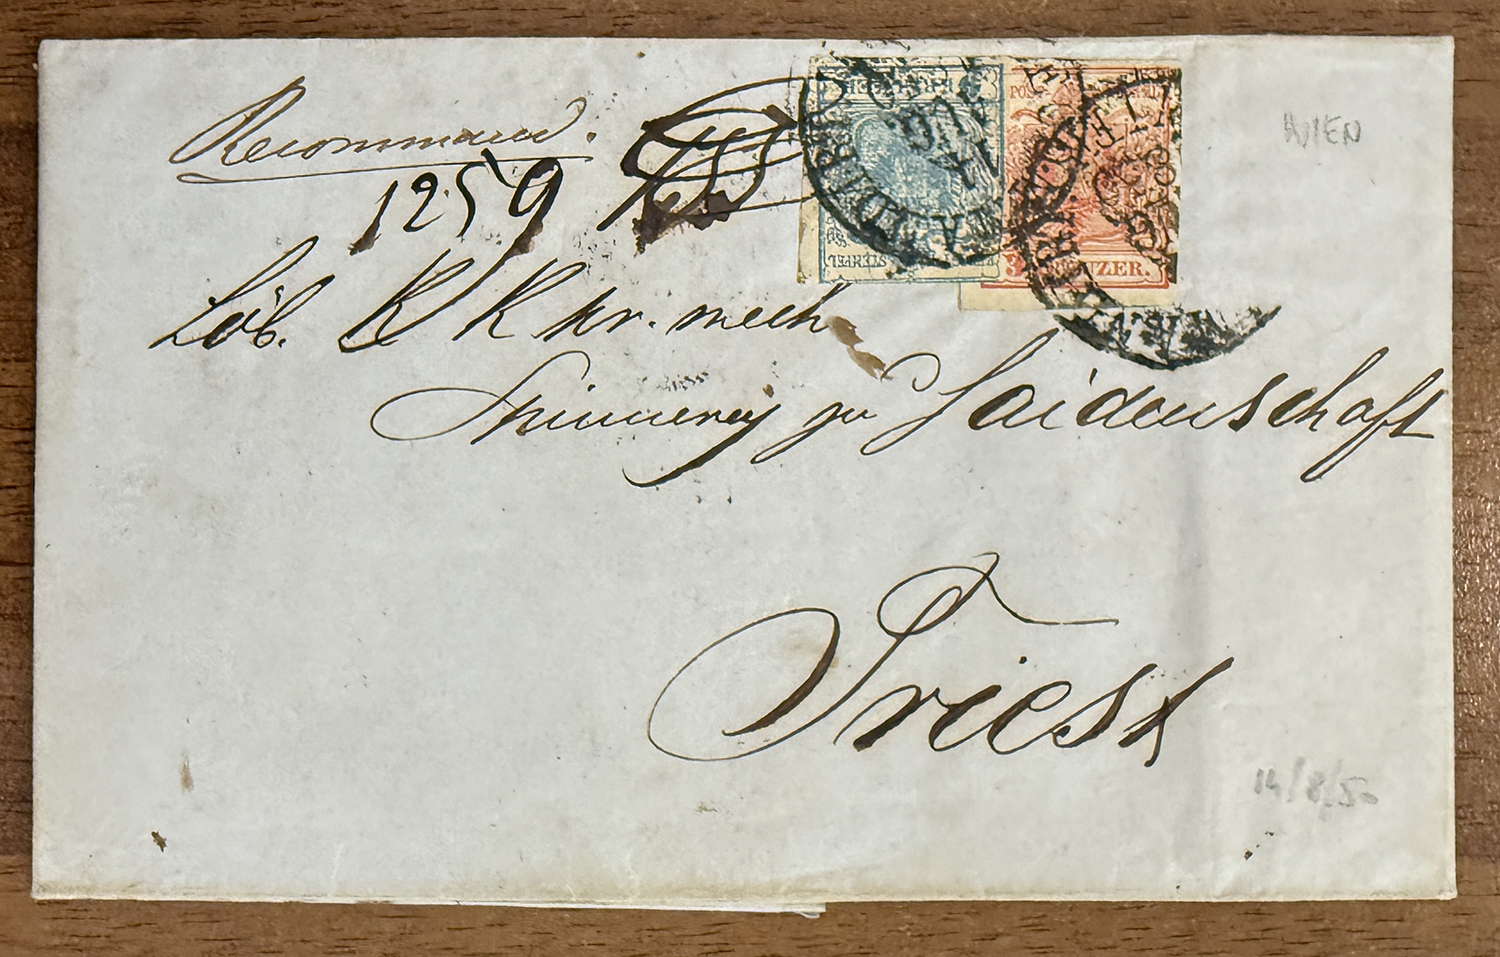 Recommand.
1259
Löb. K K pr. mech
Spinnerey zu Haidenschaft
Triest
KREUZER.
STEMPEL
WIEN
14/8/50